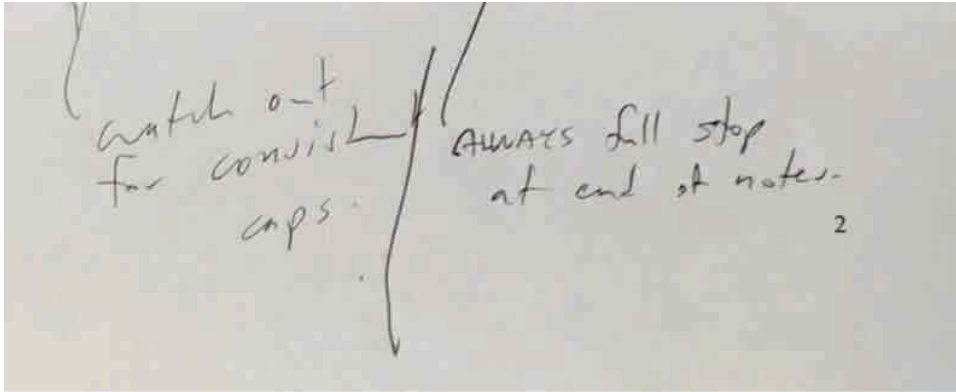 watch out
for consist
caps.
ALWAYS full stop
at end of notes.
2